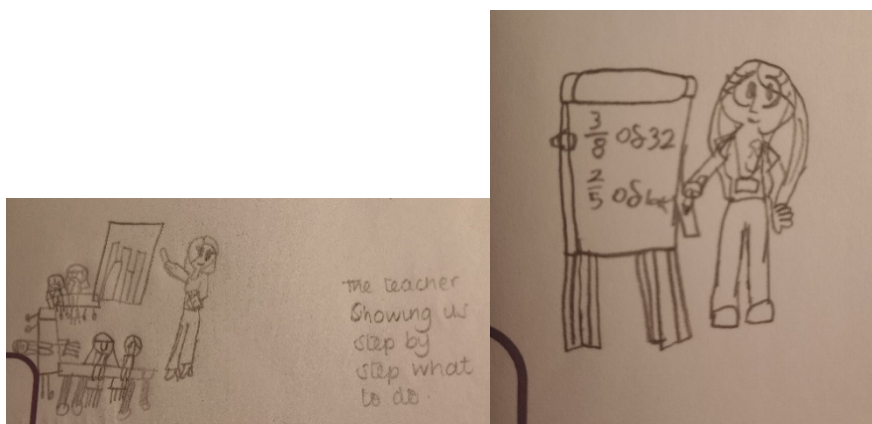 The teacher
Showing us
step by
step what
to do.
3/8 of 32
2/5 of